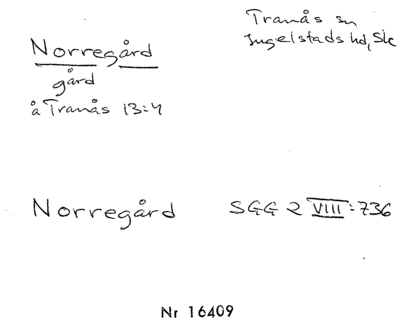 Norregård
gård
å Tranås 13:4
Tranås sn
Ingelstads hd, Sk
Norregård SGG 2 VIII:736
Nr 16409